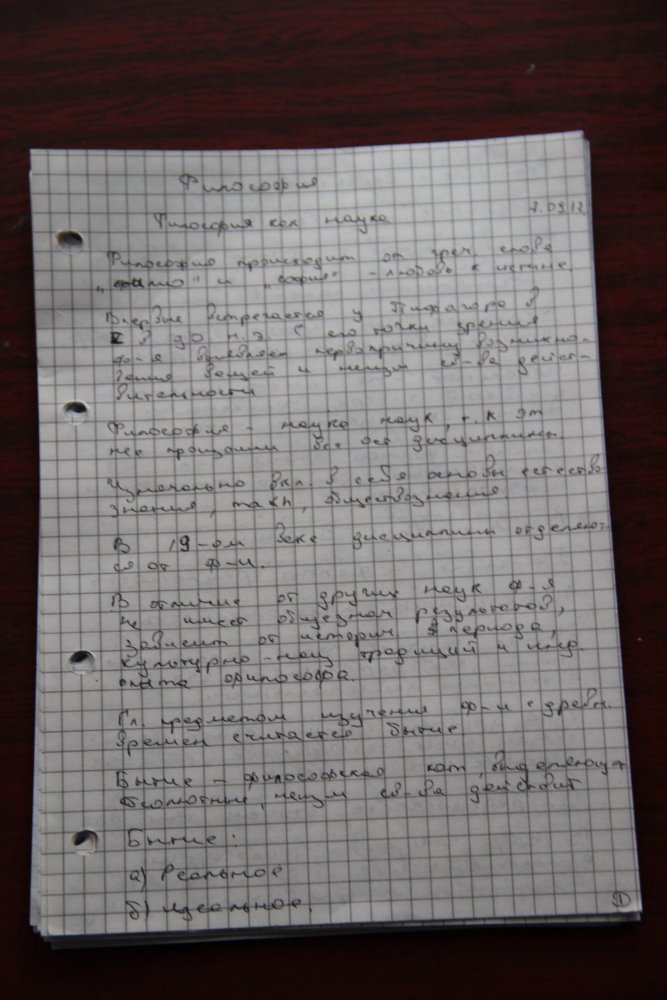 Философия
7.09.12
Философия как наука
Философия происходит от греч. слова
„фило" и „софия" - любовь к истине.
Впервые встречается у Пифагора в
в до н.э С его точки зрения
ф-я выявляет первопричину возникно-
вения вещей и неизм св-ва дейст-
вительности
Философия - наука наук, т.к от
нее произошли все дисциплины.
Изначально вкл. в себя основы естество
знания, обществознания
В 19-ом веке дисциплины отделяют-
ся от ф-и.
В отличие от других наук ф-я
не имеет общезнач результатов,
зависит от историч периода,
культурно-нац традиций и инд.
опыта философа.
Гл. предметом изучения ф-и с древн.
времен считается бытие
Бытие - философская кат, выделяющая
абсолютные, неизм св-ва действит
Бытие:
а) Реальное
б) идеальное.
1